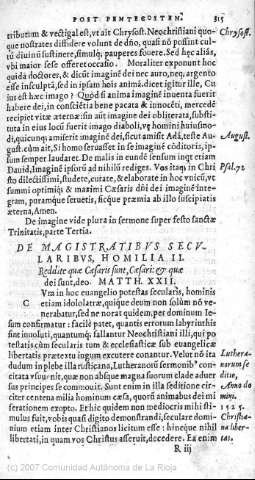 POST PENTECOSTEN. 315
tributum & vectigal est, vt ait Chrysost. Neochristiani quo- Chrysost.
que nostrates dissidere volunt de dño, quasi nõ possint cul-
tū diuinū sustinere, simulq; pauperes fouere. Sed hęc aliàs,
vbi maior sese offeret occasio. Moraliter exponunt hoc
quidā doctores, & dicūt imaginē dei nec auro, neq; argento
esse insculptā, sed in ipsam hoīs animā. dicet igitur ille, Cu
ius est hæc imago? Quòd si anima imaginē inuenta fuerit
habere dei, in conscietia bene pacata & innocēti, mercedē
recipiet vitæ æternæ: sin aūt imagine dei obliterata, substi-
tuta in eius locū fuerit imago diaboli, vt homini huiusmo
di, quicumq; amiserit imaginē dei, sicut amisit Adā, teste Au- August.
gust. eum ait, Si homo seruasset in se imaginē cōditoris, ip-
sum semper laudaret. De malis in eundē sensum inqt etiam
Dauid, Imaginē ipsorū ad nihilū rediges. Vos itaq; in Chri Psal. 72
sto dilectissimi, studete, curate, & elaborate in hoc vnicū, vt
summi optimiq; & maximi Cæsaris dñi dei imaginē inte-
gram, puramque seruetis, ficque præmia ab illo suscipiatis
æterna, Amen.
De imagine vide plura in sermone super festo sanctæ
Trinitatis, parte Tertia.
DE MAGISTRATIBVS SECV-
LARIBVS, HOMILIA II.
Reddite quæ Cæsaris sunt, Cæsari: & quæ
dei sunt, deo. MATTH. XXII.
CVm in hoc euangelio potestas secularis, hominis
etiam idololatræ, quique deum non solùm nō ve-
nerabatur, sed ne norat quidem, per dominum Ie-
sum confirmatur: facilè patet, quantis errorum labyrinthis
sint inuoluti, quantumq; fallantur Neochristiani illi, qui po
testatis cùm secularis tum & ecclesiasticæ sub euangelicæ
libertatis prætextu iugum excutere conantur. Velut nō ita Luthera-
dudum in plebe illa rusticana, Lutheranorū sermonib⁹ con- norum se
citata vsu-nit, quæ non absque magna suorum clade aduer ditio,
sus principes se commouit. Sunt enim in illa seditione cir Anno do
citer centena milia hominum cæsa, quorū animabus dei mi mini,
serationem exopto. Ethic quidem non mediocris mihi sti- 1525.
mulus fuit, vobis quasi digito demonstrandi, seculare domi- Christia-
nium etiam inter Christianos licitum esse: hincque nihil na liber
libertati, in quam vos Christus asseruit, decedere. Ex enim tas.
R iij
© 2007 Comunidad Autónoma de La Rioja